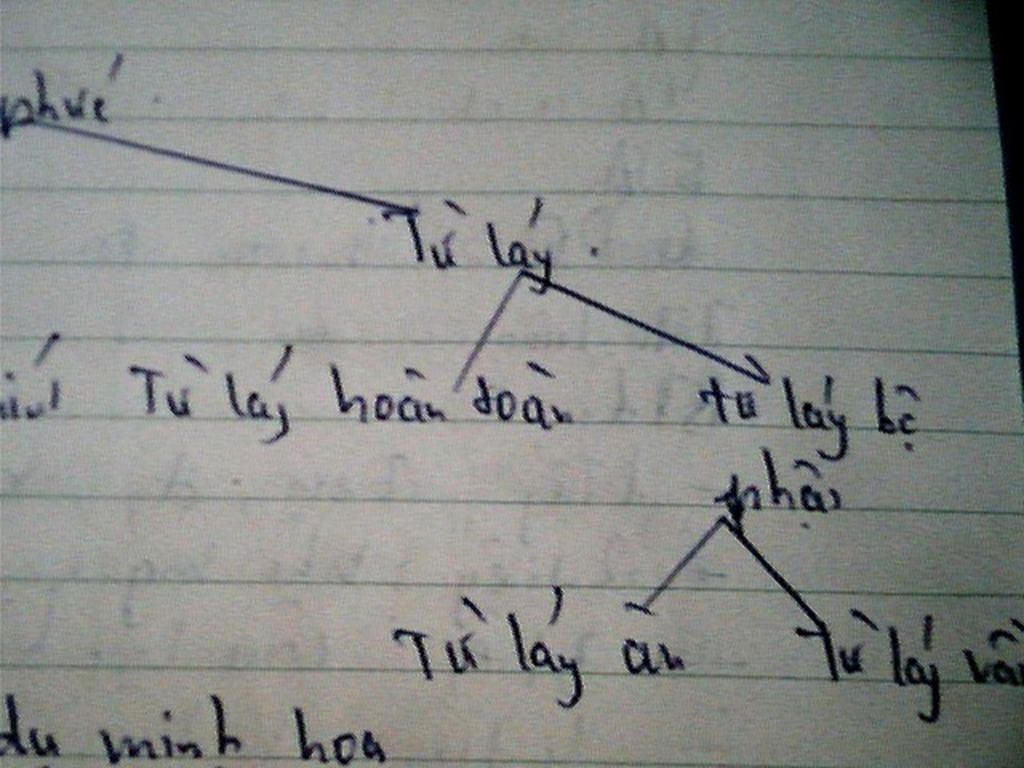 Từ láy.
Từ láy hoàn toàn từ láy bộ
phận
Từ láy âm Từ láy vần
dụ minh hoạ